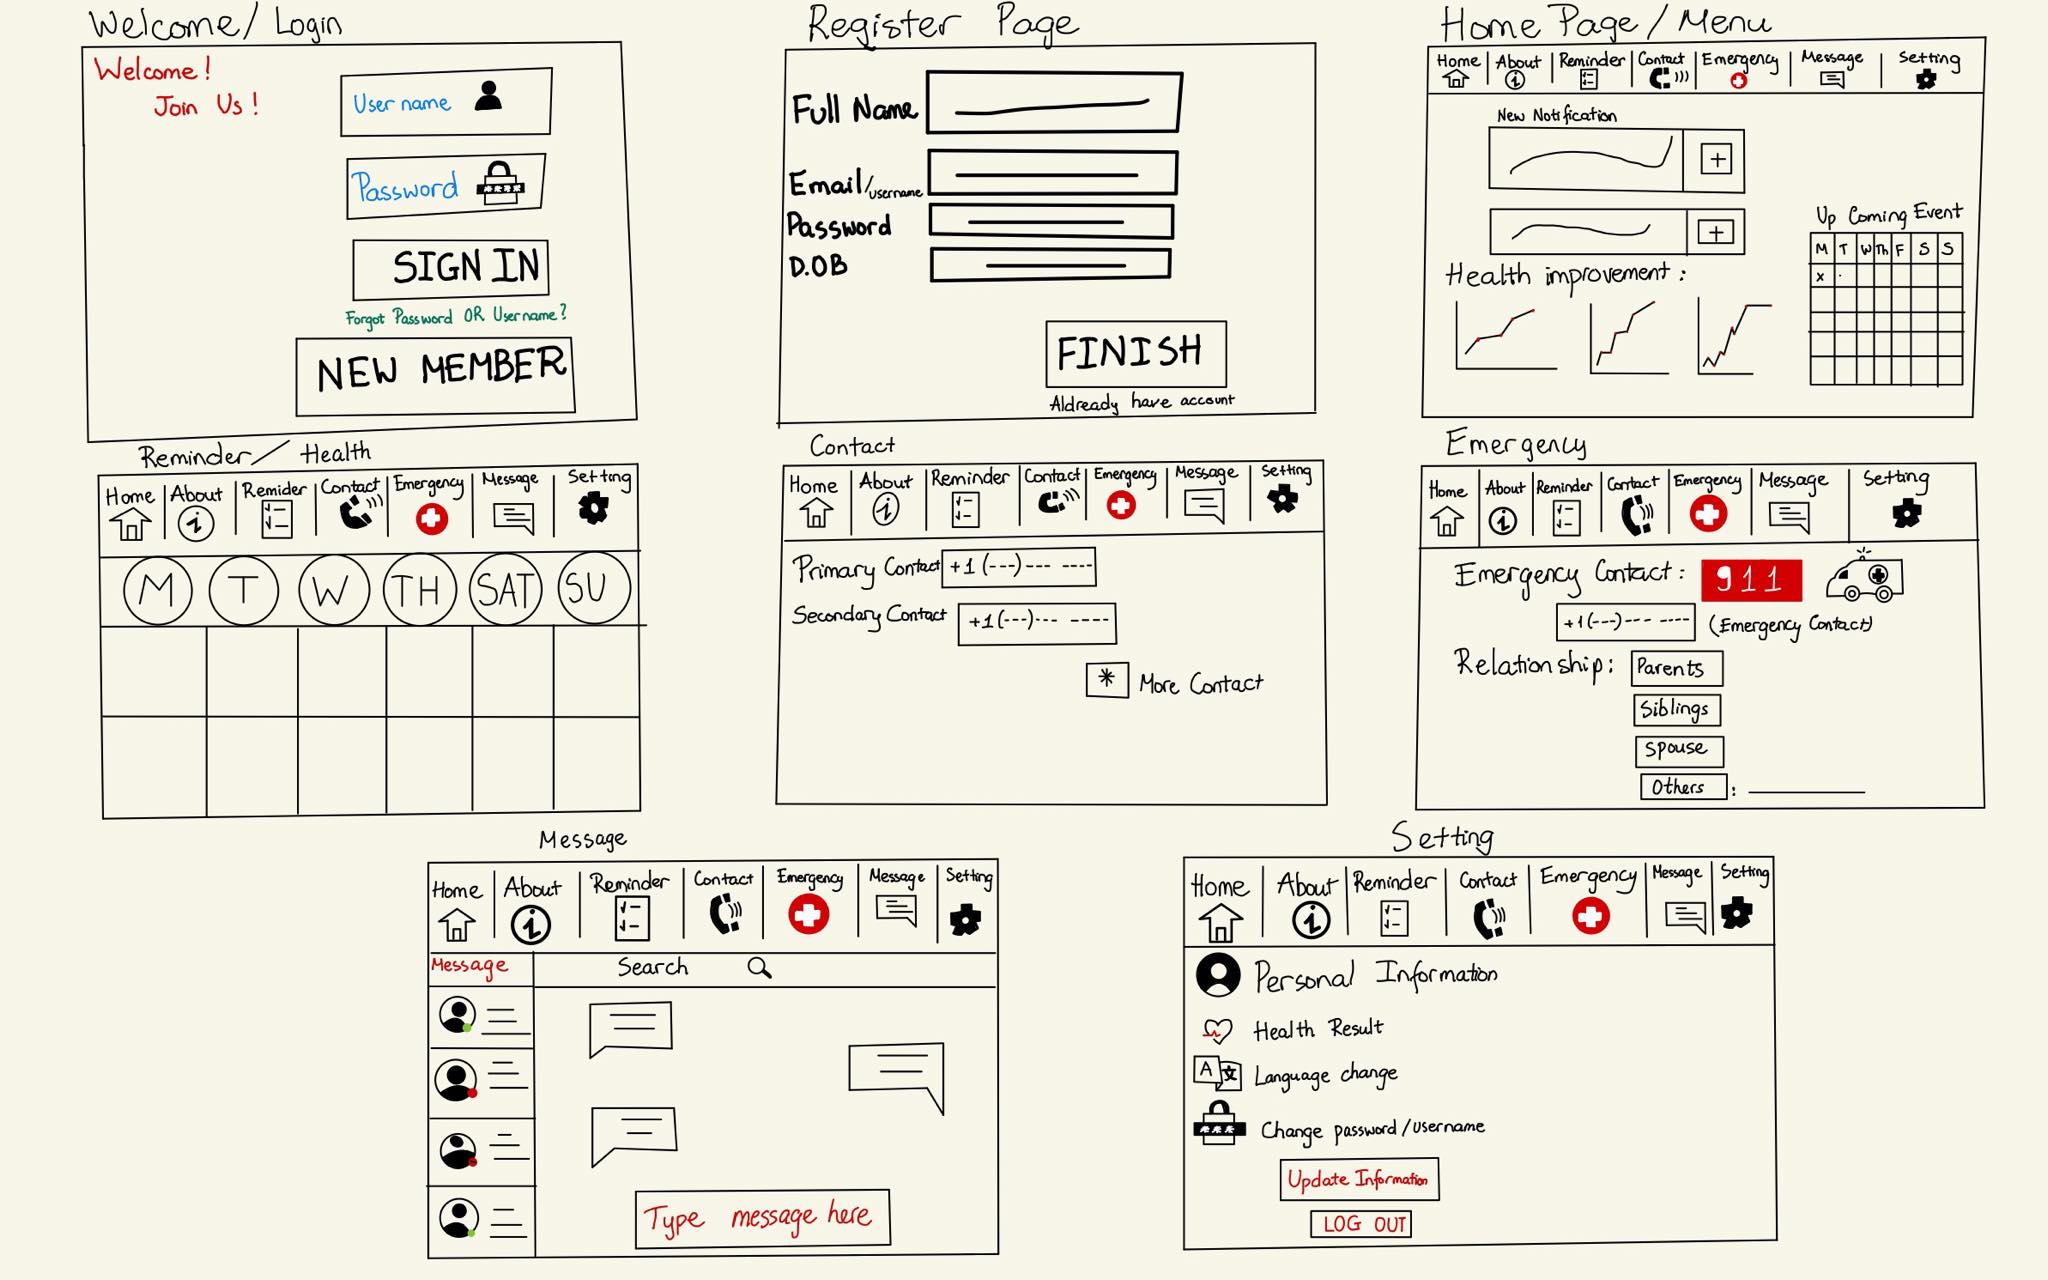 Welcome/ Login
Welcome!
Join Us!
User name
Password
****
SIGN IN
Forgot Password OR Username?
NEW MEMBER
Register Page
Full Name
Email/username
Password
D.OB
FINISH
Aldready have account
Home Page / Menu
Home About Reminder Contact Emergency Message Setting
New Notification
+
+
Up Coming Event
M T W Th F S S
x
Health improvement:
Reminder/ Health
Home About Remider Contact Emergency Message Setting
M T W TH SAT SU
Contact
Home About Reminder Contact Emergency Message Setting
Primary Contact +1 (---)--- ----
Secondary Contact +1 (---)--- ----
* More Contact
Emergency
Home About Reminder Contact Emergency Message Setting
Emergency Contact: 911
+1 (---)--- ---- (Emergency Contact)
Relationship: Parents
Siblings
Spouse
Others : ______
Message
Home About Reminder Contact Emergency Message Setting
Message Search
Type message here
Setting
Home About Reminder Contact Emergency Message Setting
Personal Information
Health Result
A 文 Language change
*** Change password/username
Update Information
LOG OUT